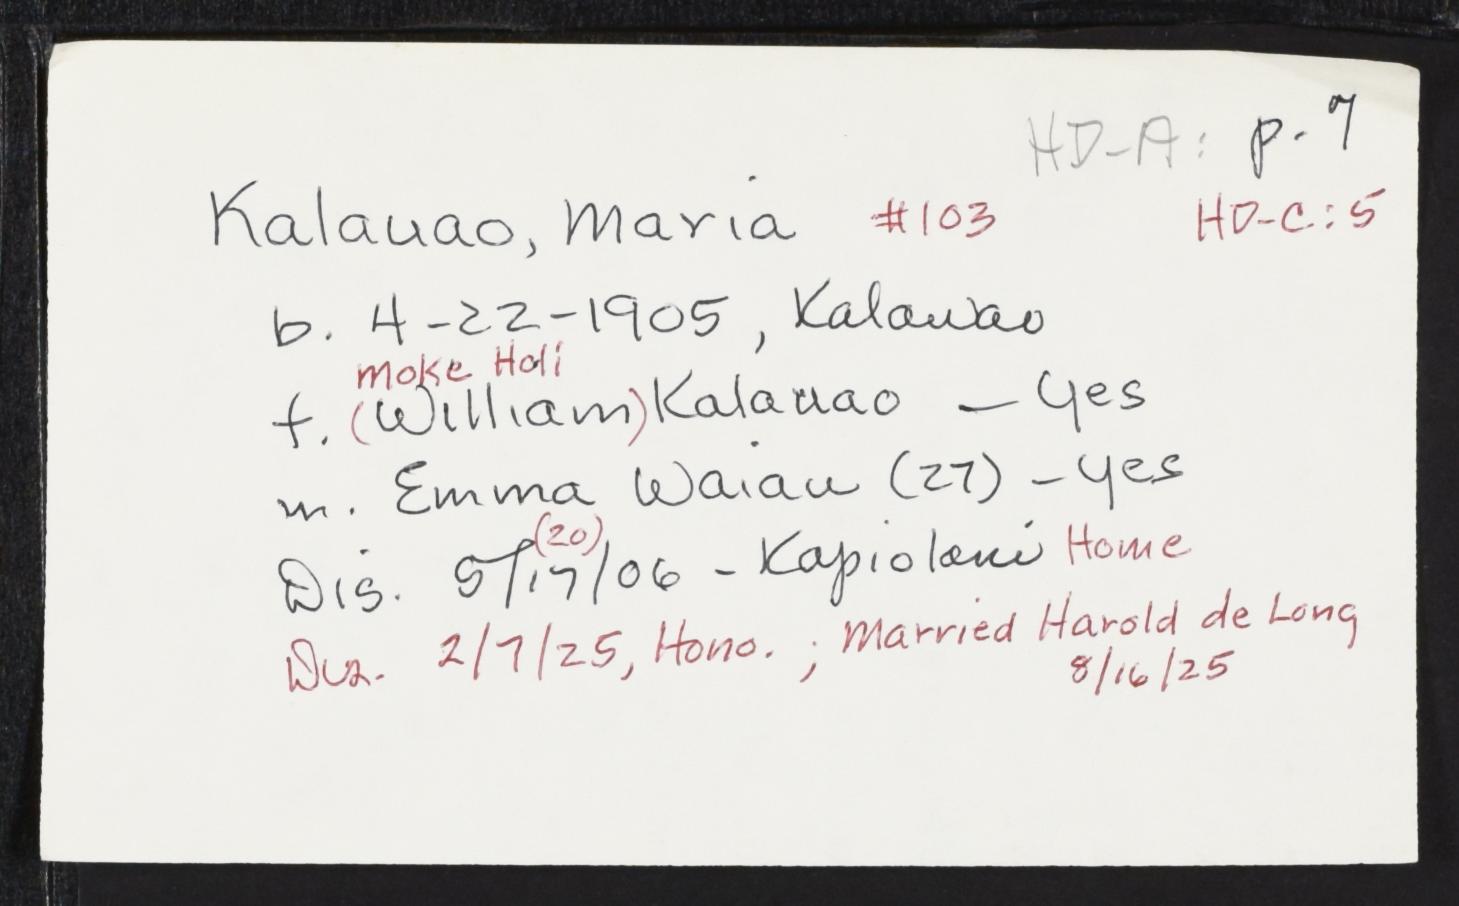 HD-A: p. 7
Kalauao, Maria #103 HD-C: 5
b. 4-22-1905, Kalawao
Moke Holi
f. (William) Kalauao — Yes
m. Emma Waiau (27) — Yes
(20)
Dis. 5/17/06 - Kapiolani Home
Dis. 2/7/25, Hono. ; Married Harold de Long
8/16/25